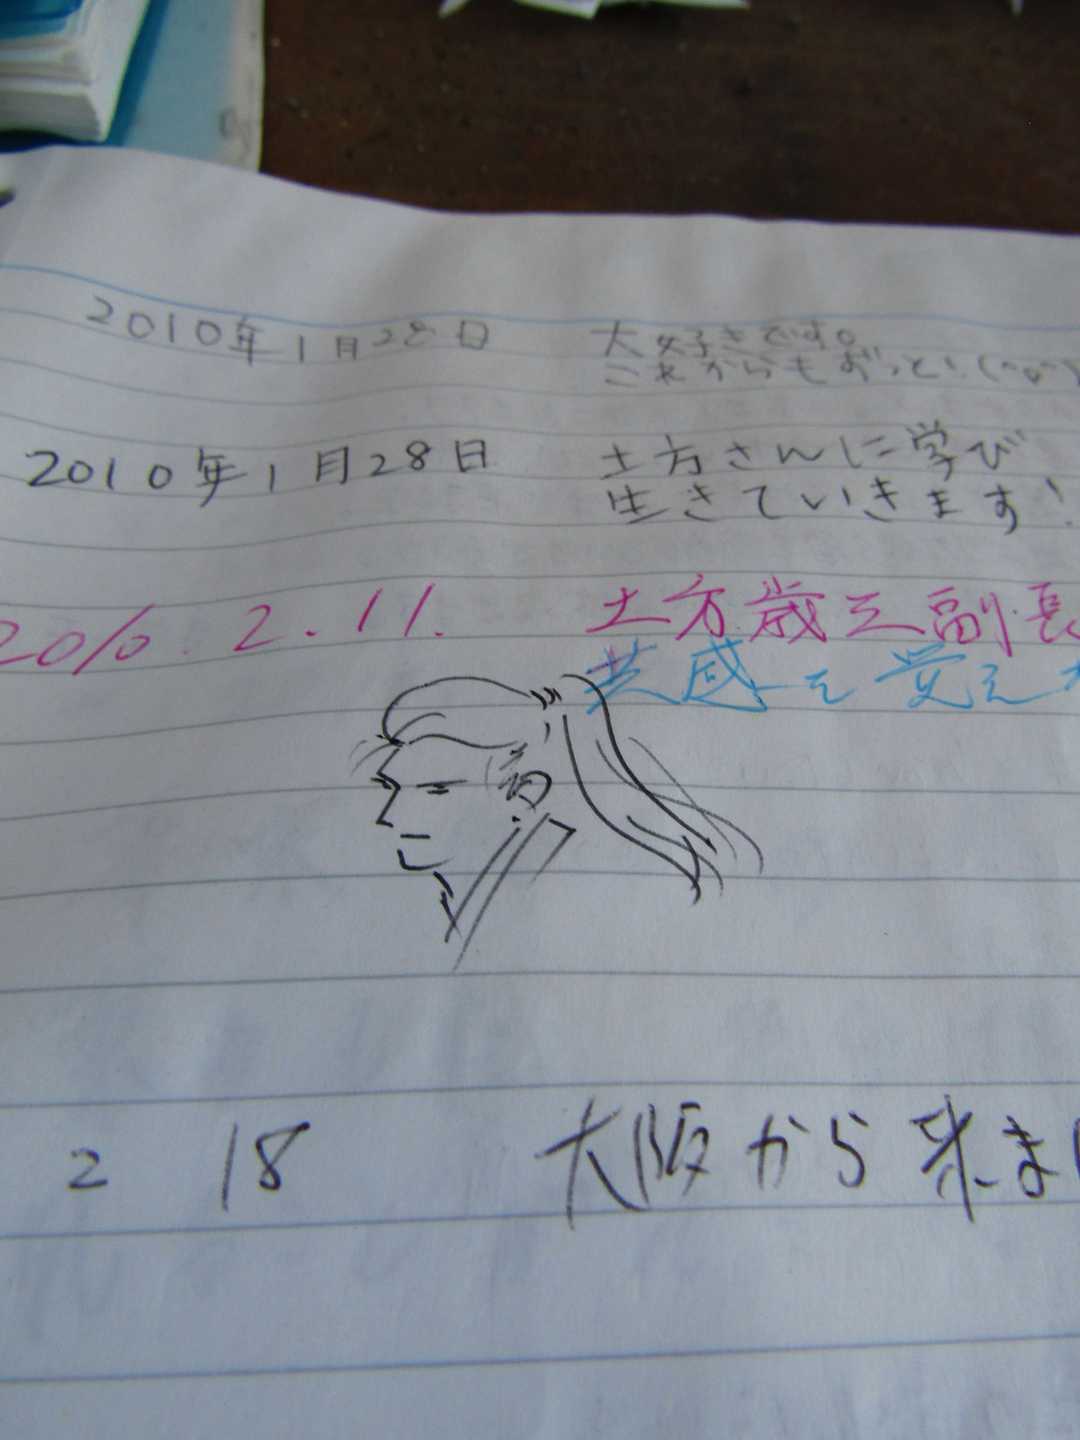 2010年1月28日 大好きです。
これからもずっと!(^o^)
2010年1月28日 土方さんに学び
生きていきます!
2010.2.11. 土方歳三副長
共感を覚え
2 18 大阪から来ま